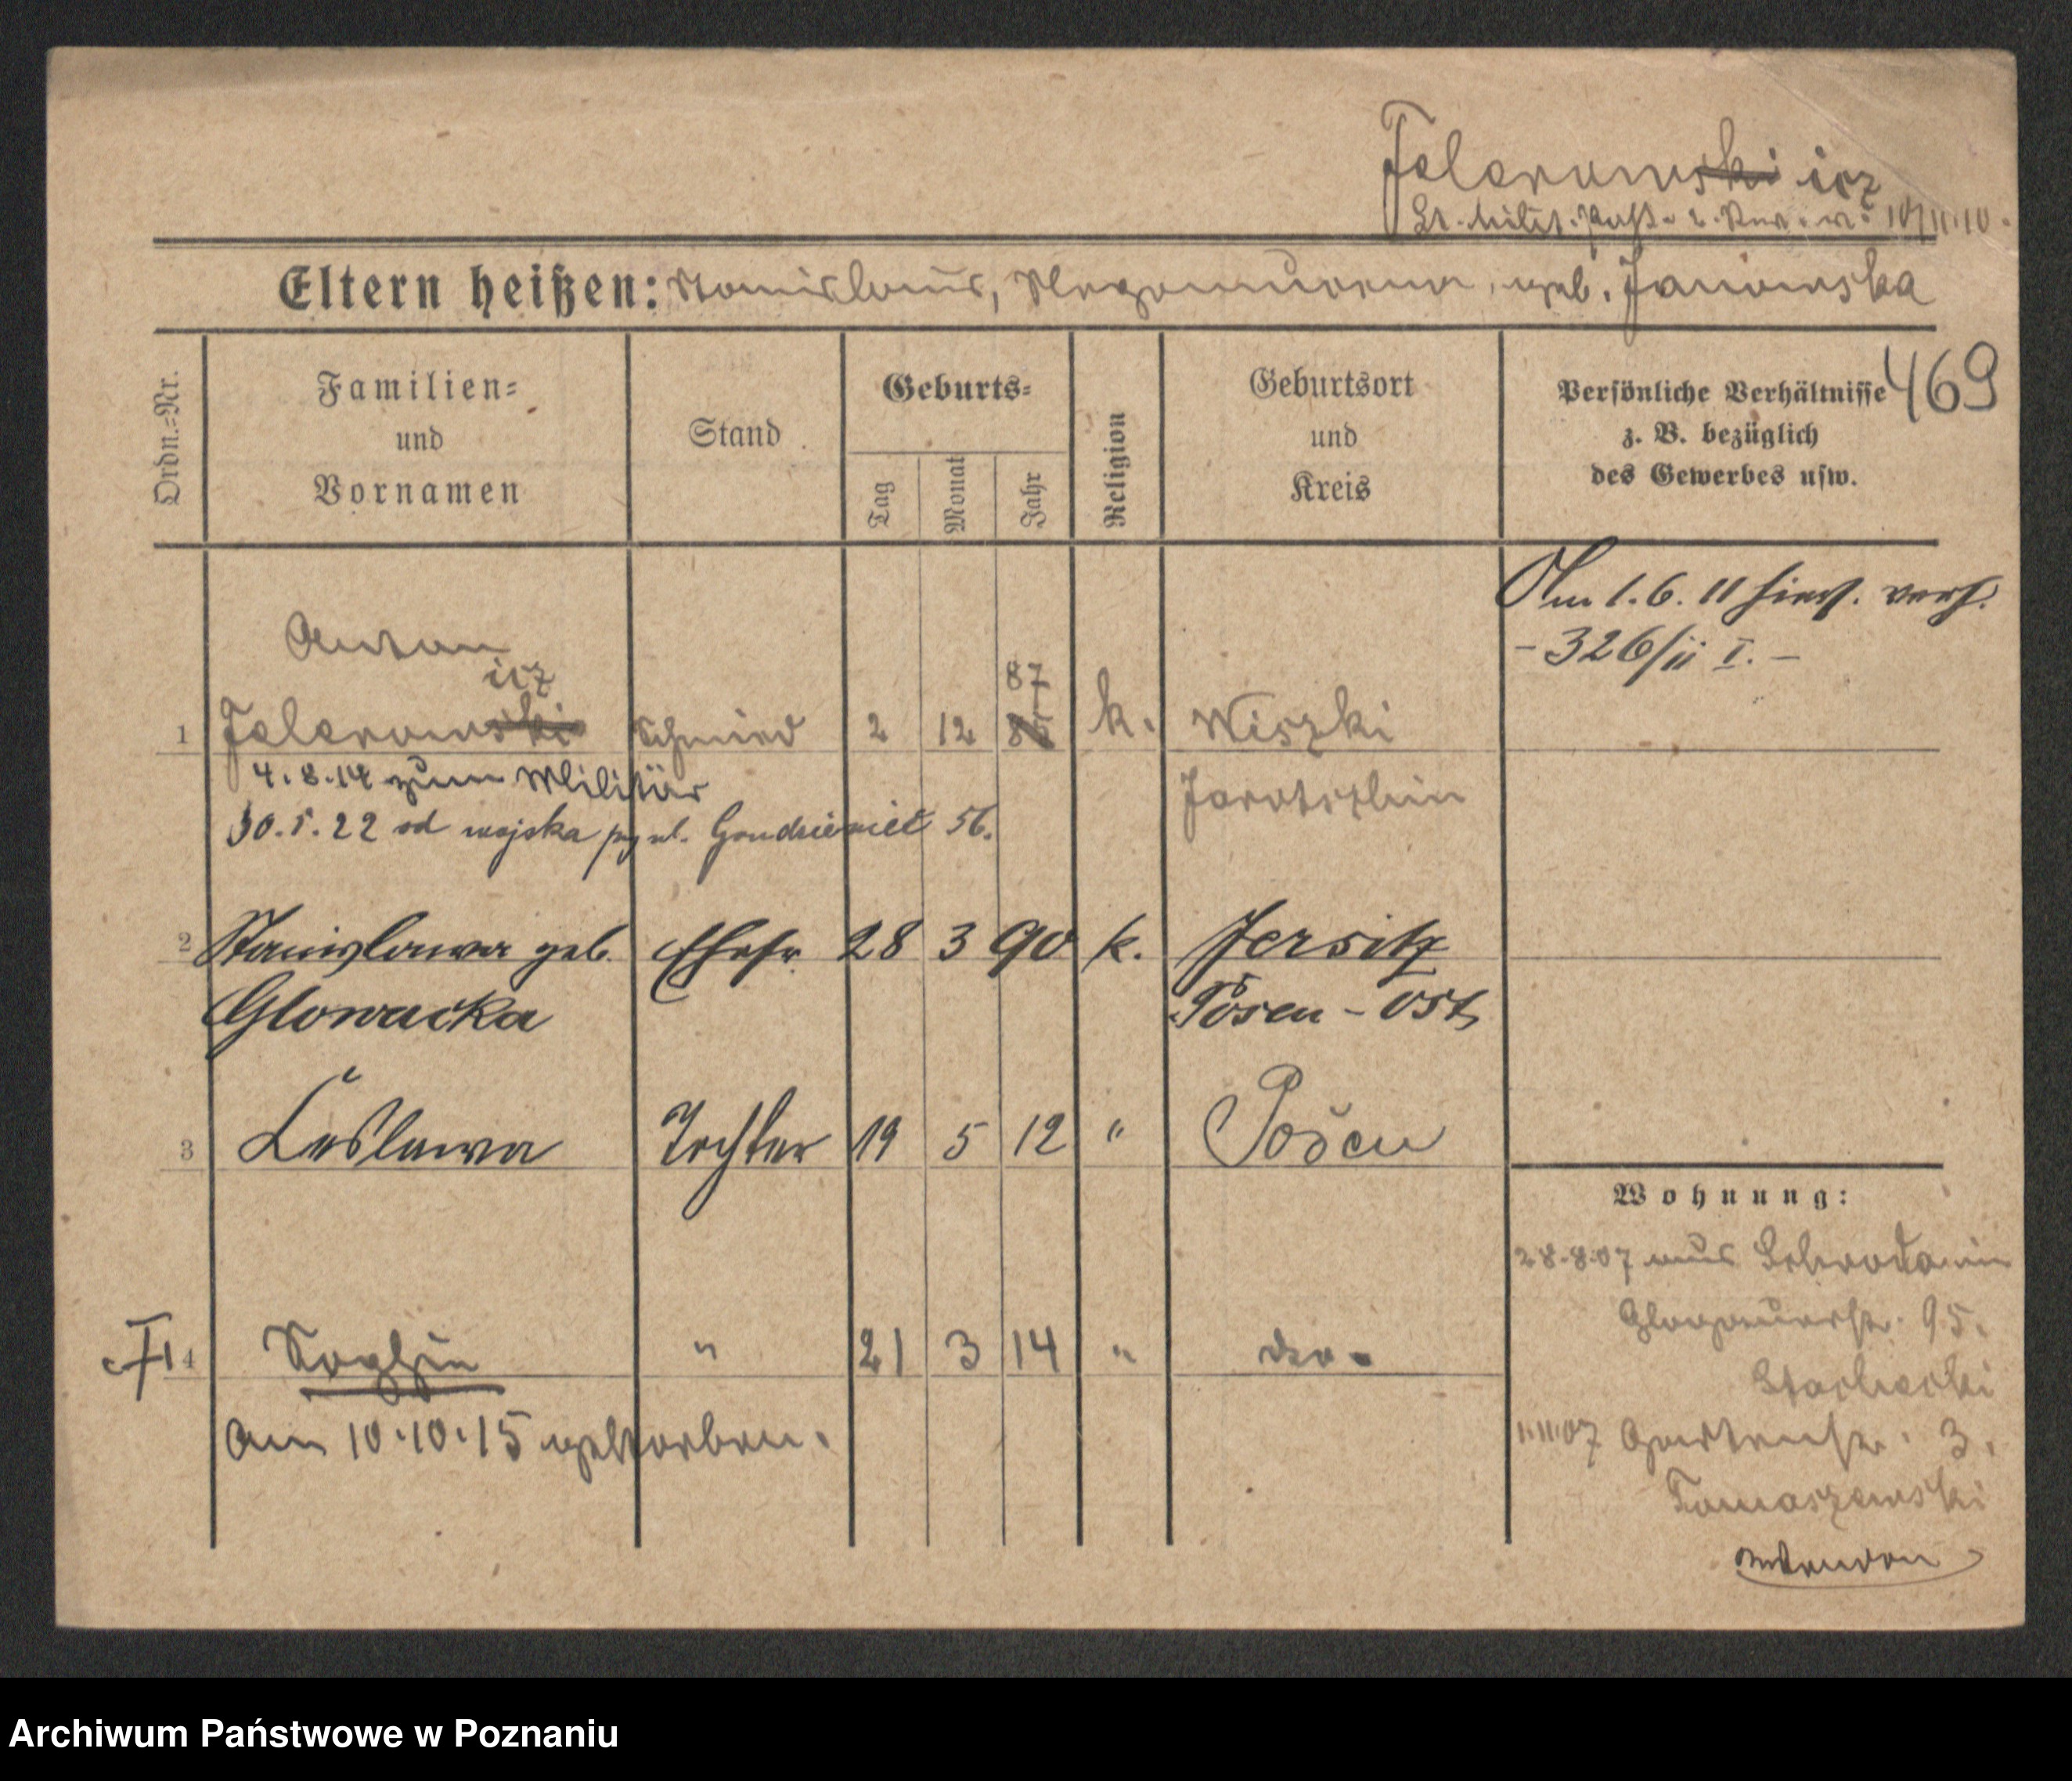 Felerowski icz
Lt. Milit. Paß v. 10/11.10.
Eltern heißen: Stanislaus, geb. Janowska
469
Ordn.-Nr.
Familien-
und
Vornamen
Stand
Geburts-
Tag
Monat
Jahr
Religion
Geburtsort
und
Kreis
Persönliche Verhältnisse
z. B. bezüglich
des Gewerbes usw.
Am 1.6.11 hies. verh.
- 326/11 I. -
Anton
icz
87
1 Felerowski Schmied 2 12 k. Wiszki
4.8.14 zum Militär
Jarotschin
30.5.22 od wojska 56.
2 Stanislawa geb. Ehefr. 28 3 90 k. Jersitz
Glowacka Posen-Ost
3 Leslawa Tochter 19 5 12 " Posen
Wohnung:
28.8.07 aus
Glogauerstr. 95.
4 Sophie " 21 3 14 " do.
Stachecki
am 10.10.15 gestorben.
1.11.07 Gartenstr. 3.
Tomaszewski
wenden
Archiwum Państwowe w Poznaniu